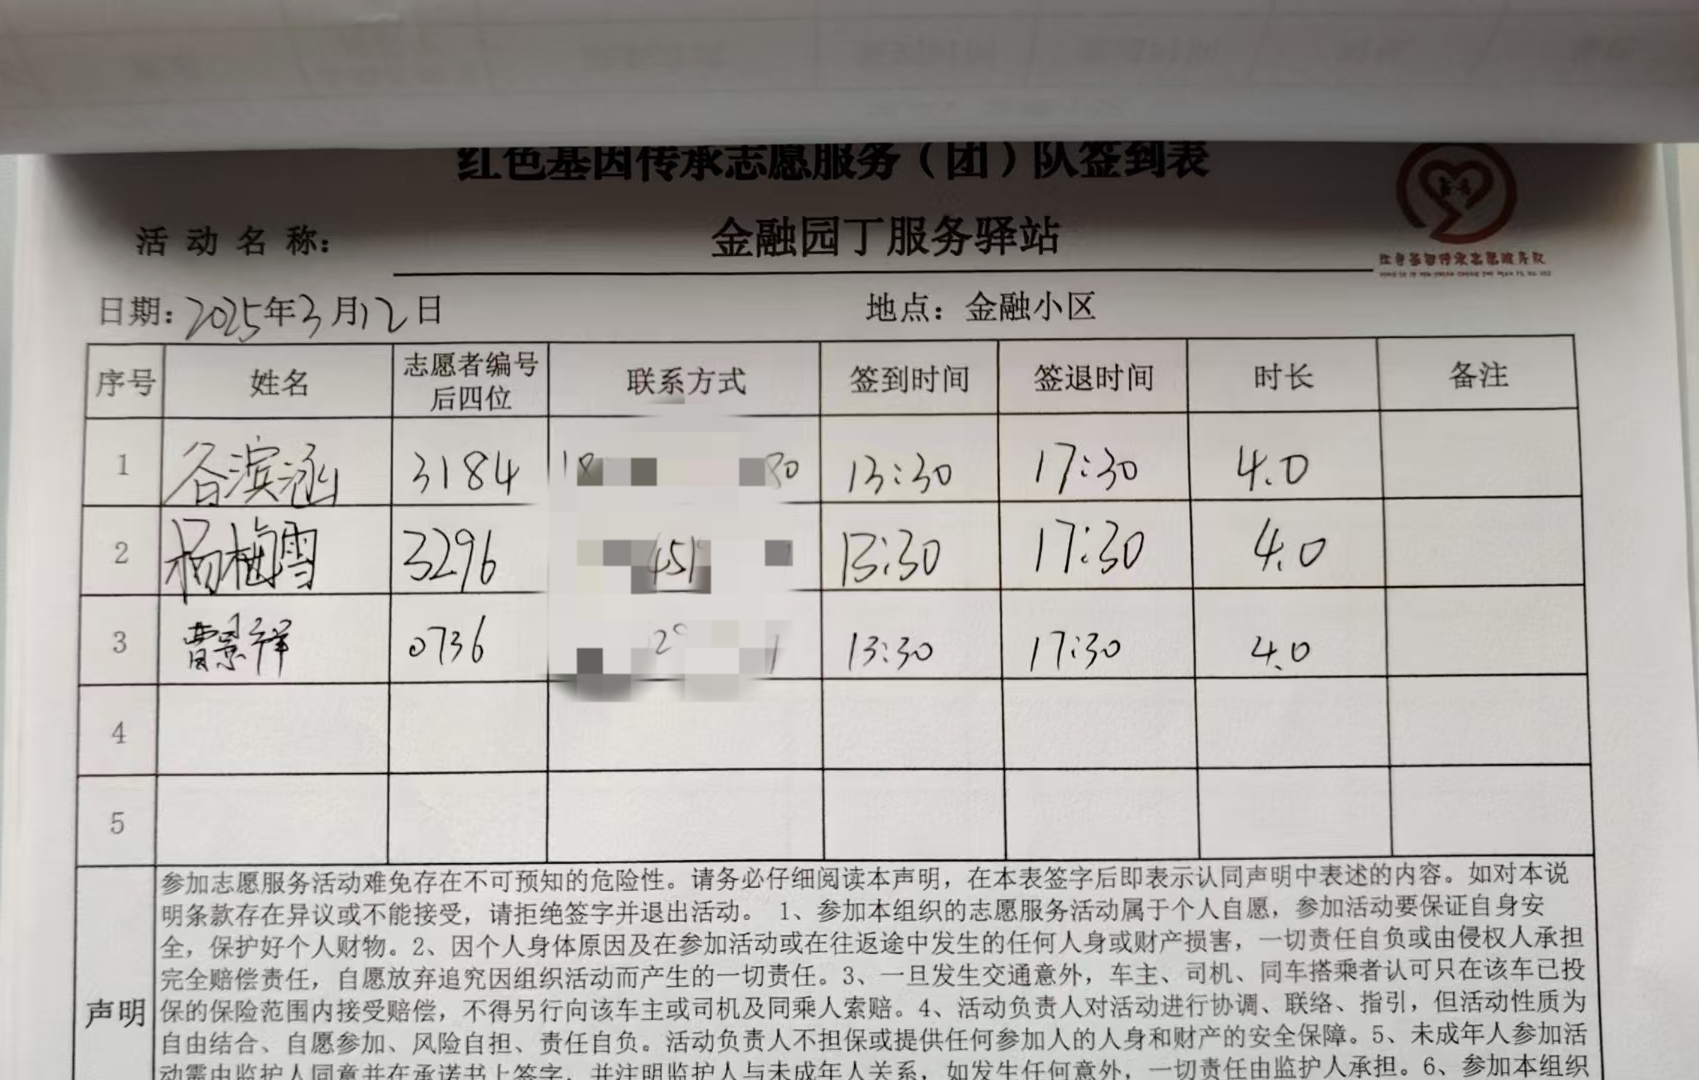 红色基因传承志愿服务（团）队签到表
活动名称： 金融园丁服务驿站
日期：2025年3月12日 地点：金融小区
序号 姓名 志愿者编号后四位 联系方式 签到时间 签退时间 时长 备注
1 谷滨涵 3184 18 80 13:30 17:30 4.0
2 杨梅雪 3296 451 13:30 17:30 4.0
3 曹景祥 0736 2 1 13:30 17:30 4.0
4
5
声明
参加志愿服务活动难免存在不可预知的危险性。请务必仔细阅读本声明，在本表签字后即表示认同声明中表述的内容。如对本说
明条款存在异议或不能接受，请拒绝签字并退出活动。 1、参加本组织的志愿服务活动属于个人自愿，参加活动要保证自身安
全，保护好个人财物。2、因个人身体原因及在参加活动或在往返途中发生的任何人身或财产损害，一切责任自负或由侵权人承担
完全赔偿责任，自愿放弃追究因组织活动而产生的一切责任。3、一旦发生交通意外，车主、司机、同车搭乘者认可只在该车已投
保的保险范围内接受赔偿，不得另行向该车主或司机及同乘人索赔。4、活动负责人对活动进行协调、联络、指引，但活动性质为
自由结合、自愿参加、风险自担、责任自负。活动负责人不担保或提供任何参加人的人身和财产的安全保障。5、未成年人参加活
动需由监护人同意并在承诺书上签字，并注明监护人与未成年人关系，如发生任何意外，一切责任由监护人承担。6、参加本组织